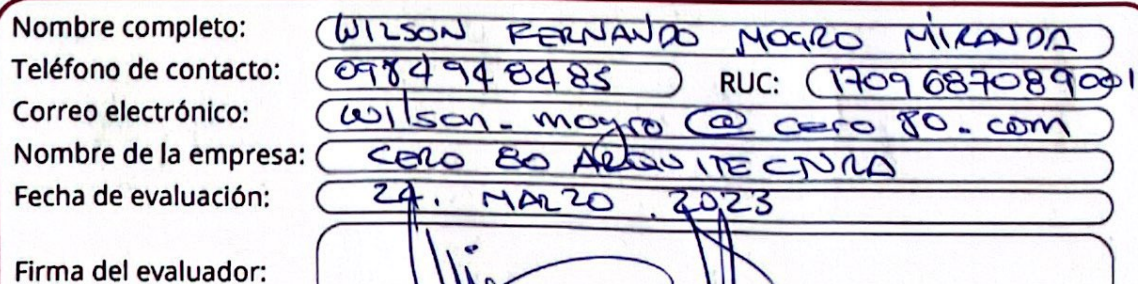 Nombre completo: WILSON FERNANDO MOGRO MIRANDA
Teléfono de contacto: 0984948485 RUC: 1709687089001
Correo electrónico: wilson-mogro@cero80.com
Nombre de la empresa: CERO 80 ARQUITECTURA
Fecha de evaluación: 24. MARZO. 2023
Firma del evaluador: